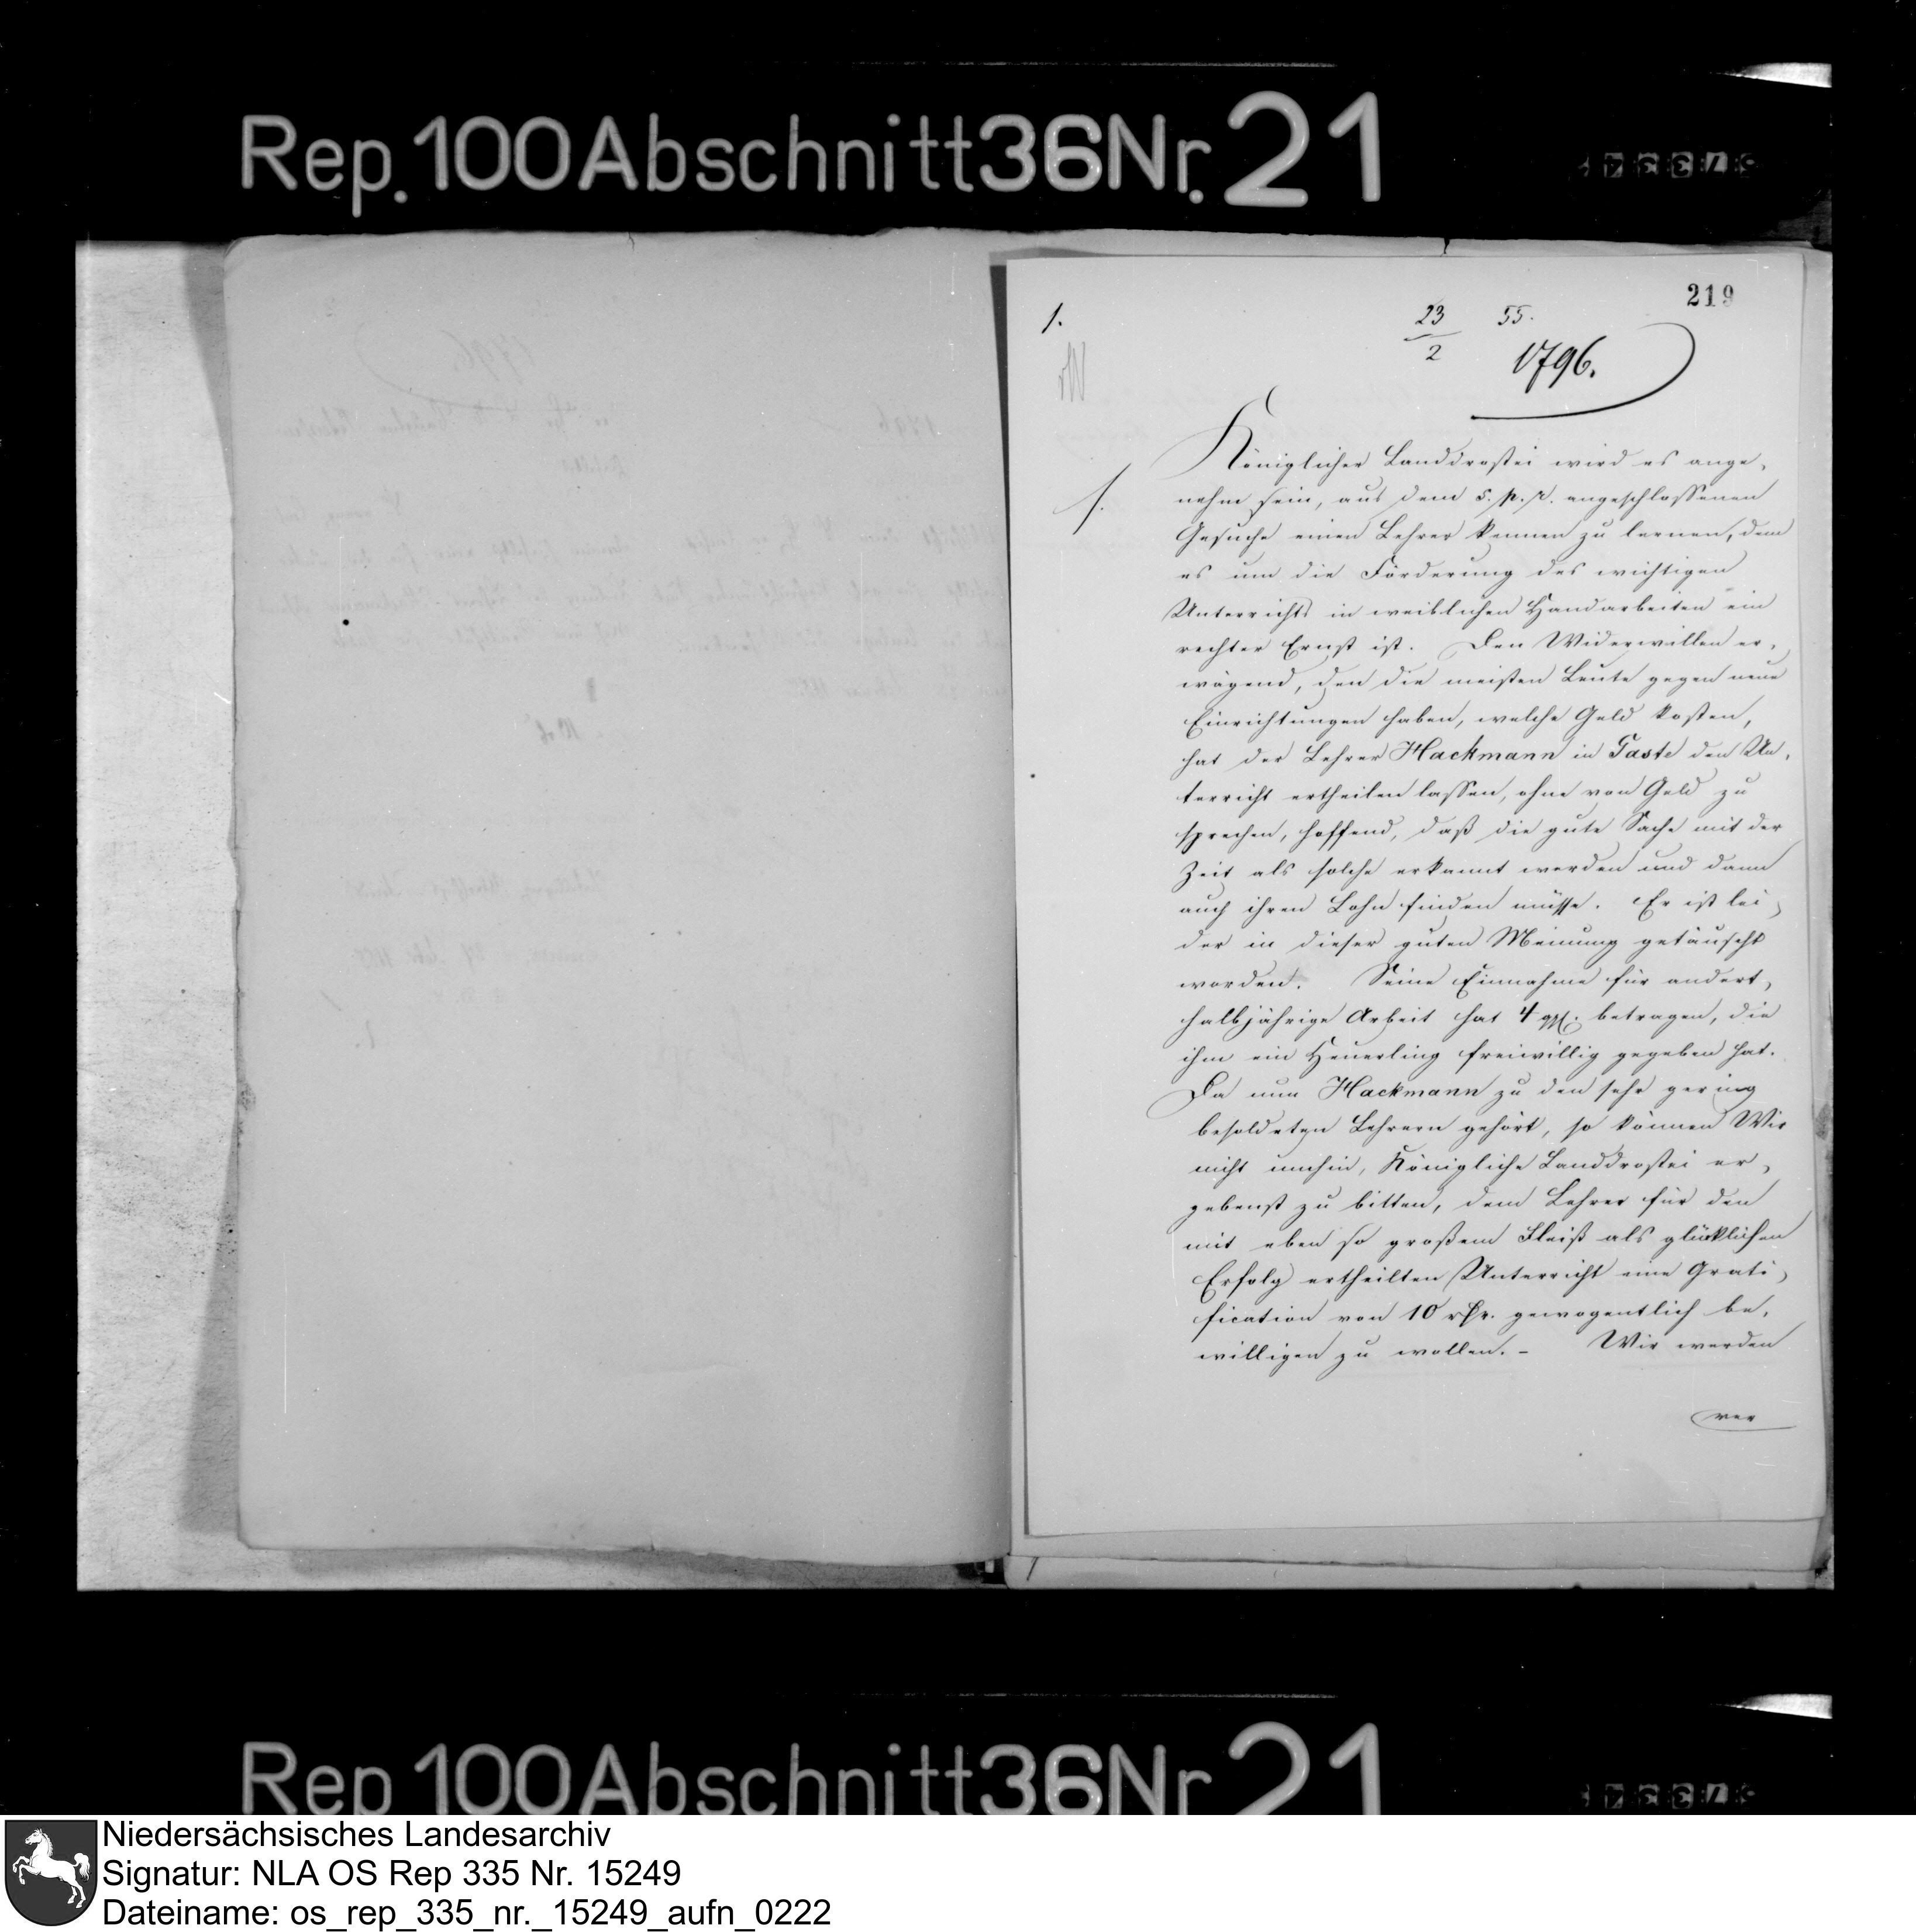 Rep. 100 Abschnitt 36 Nr. 21
219
1.
23/2 55.
1796.
Königlicher Landdrostei wird es ange,
1.
nehm sein, aus dem s. p. r. angeschlossenen
Gesuche einen Lehrer kennen zu lernen, dem
es um die Förderung des wichtigen
Unterrichts in weiblichen Handarbeiten ein
rechter Ernst ist. Den Widerwillen er,
wägend, den die meisten Leute gegen neue
Einrichtungen haben, welche Geld kosten,
hat der Lehrer Hackmann in Gaste den Un,
terricht ertheilen lassen, ohne von Geld zu
sprechen, hoffend, daß die gute Sache mit der
Zeit als solche erkannt werden und dann
auch ihren Lohn finden müsse. Er ist lei,
der in dieser guten Meinung getäuscht
worden. Seine Einnahme für andert,
halbjährige Arbeit hat 4 ggl. betragen, die
ihm ein Heuerling freiwillig gegeben hat.
Da nun Hackmann zu den sehr gering
besoldeten Lehrern gehört, so können Wir
nicht umhin, Königliche Landdrostei er,
gebenst zu bitten, dem Lehrer für den
mit eben so großem Fleiß als glücklichen
Erfolg ertheilten Unterricht eine Grati,
fication von 10 rthr. gewogentlich be,
willigen zu wollen. – Wir werden
ver
Rep 100 Abschnitt 36 Nr 21
Niedersächsisches Landesarchiv
Signatur: NLA OS Rep 335 Nr. 15249
Dateiname: os_rep_335_nr._15249_aufn_0222